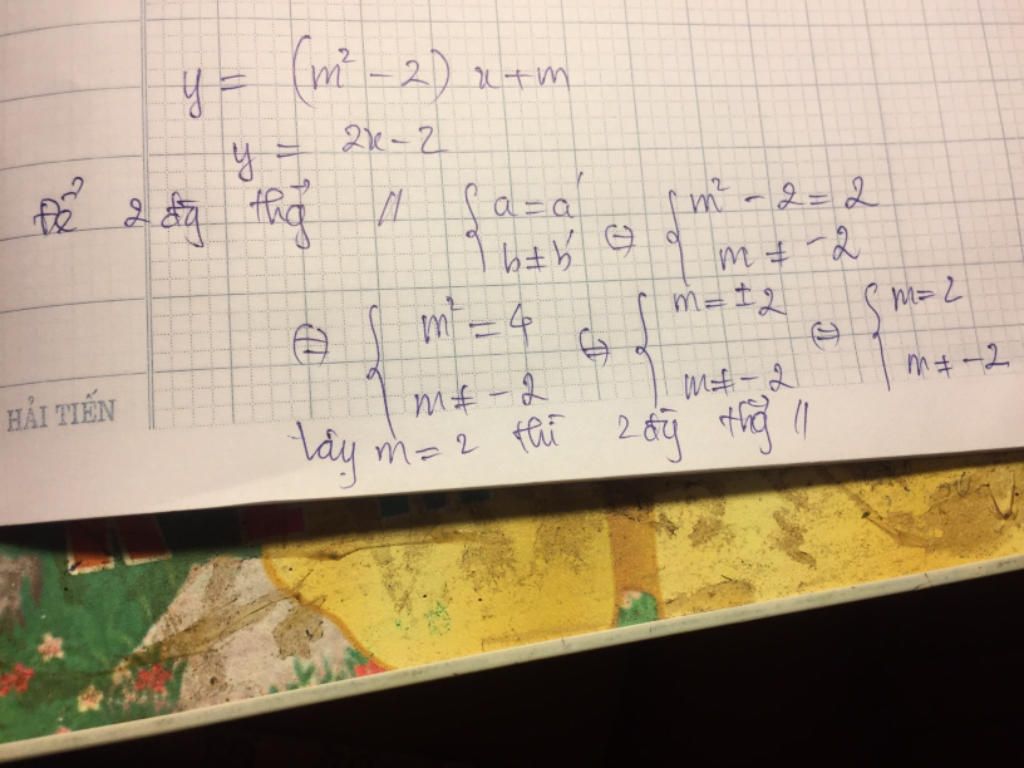 y = (m² - 2) x + m
y = 2x - 2
Để 2 đg thg // { a = a' b ≠ b' ⇔ { m² - 2 = 2 m ≠ -2
⇔ { m² = 4 m ≠ -2 ⇔ { m = ±2 m ≠ -2 ⇔ { m = 2 m ≠ -2
HẢI TIẾN
Vậy m = 2 thì 2 đg thg //